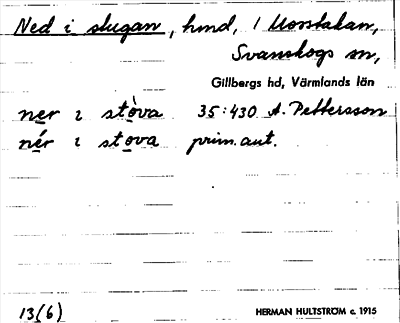 Ned i stugan, hmd, i Norstakan,
Svanskogs sn,
Gillbergs hd, Värmlands län
ner ɩ stòva 35:430 A. Pettersson
nér ɩ stova prim. aut.
13(6)
HERMAN HULTSTRÖM c. 1915